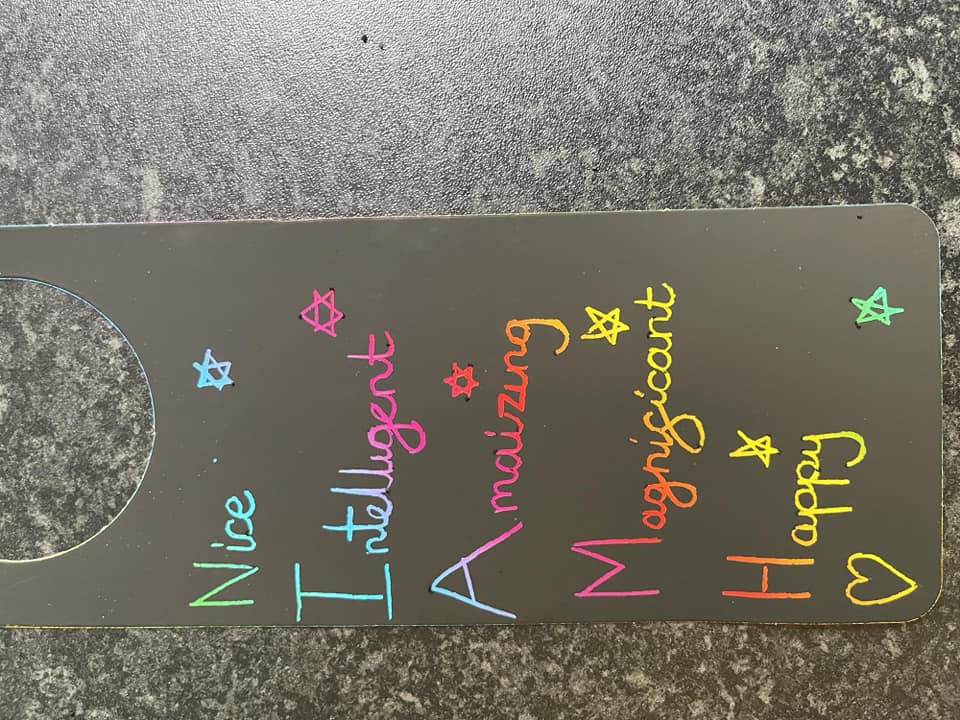 Nice
Intelligent
Amaizing
Magnificant
Happy